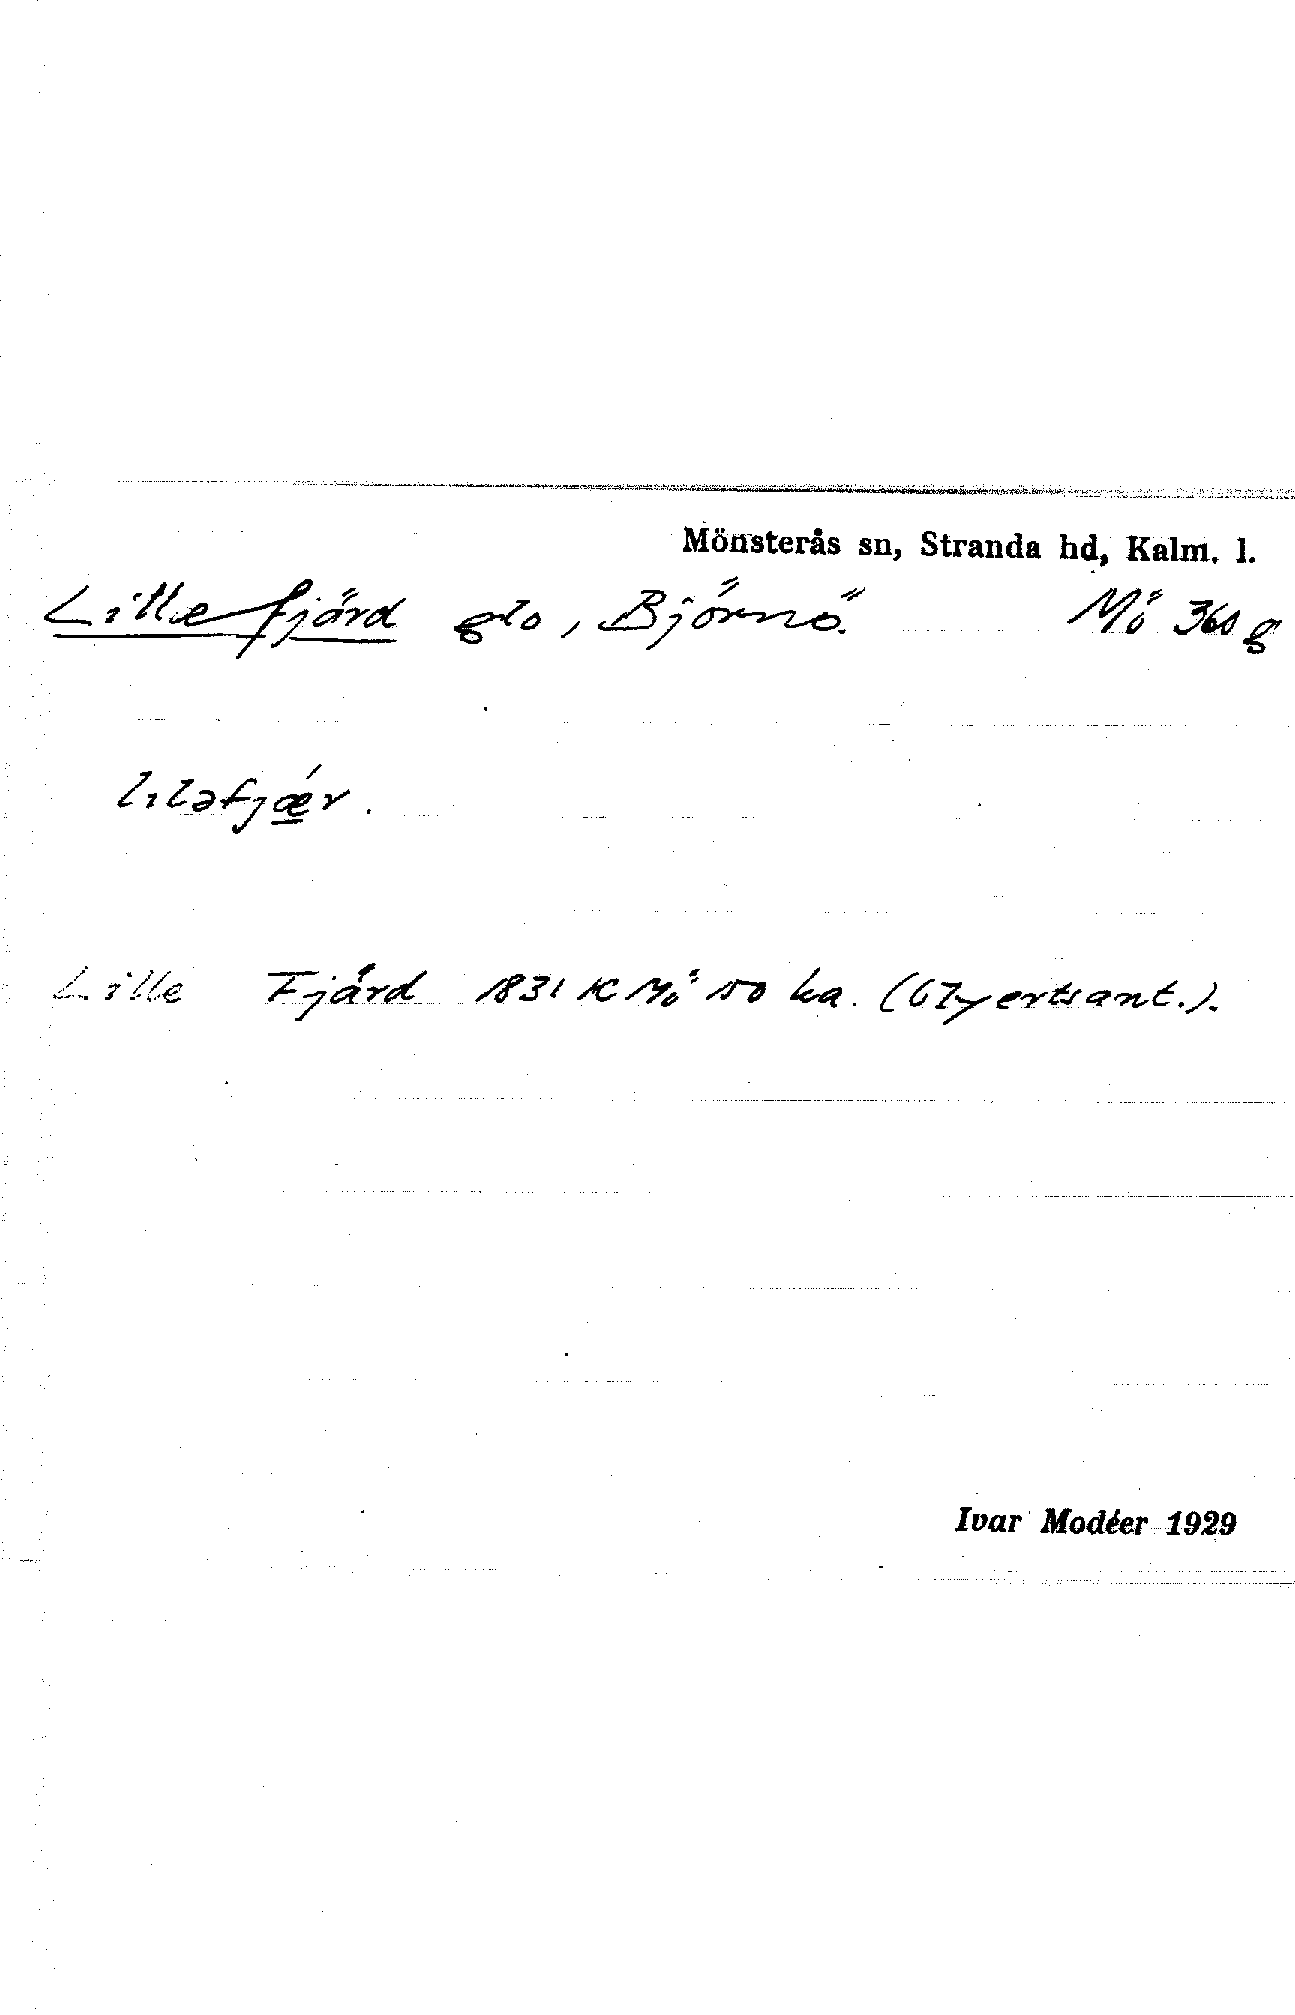 Mönsterås sn, Stranda hd, Kalm. l.
Lillefjärd glo, Björnö. Mö 360 g
lıləfjǽr.
Lille Fjärd 1831 K Mö 150 ka. (Gyertsant.).
Ivar Modéer 1929